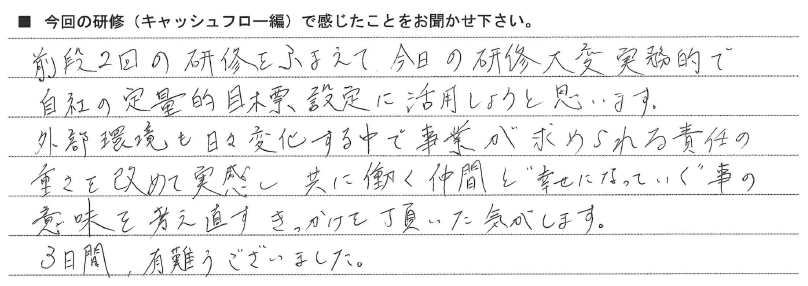 ■ 今回の研修（キャッシュフロー編）で感じたことをお聞かせ下さい。
前段2回の研修をふまえて今日の研修大変実務的で
自社の定量的目標設定に活用しようと思います。
外部環境も日々変化する中で事業が求められる責任の
重さを改めて実感し共に働く仲間と"幸せになっていく"事の
意味を考え直すきっかけを頂いた気がします。
3日間、有難うございました。